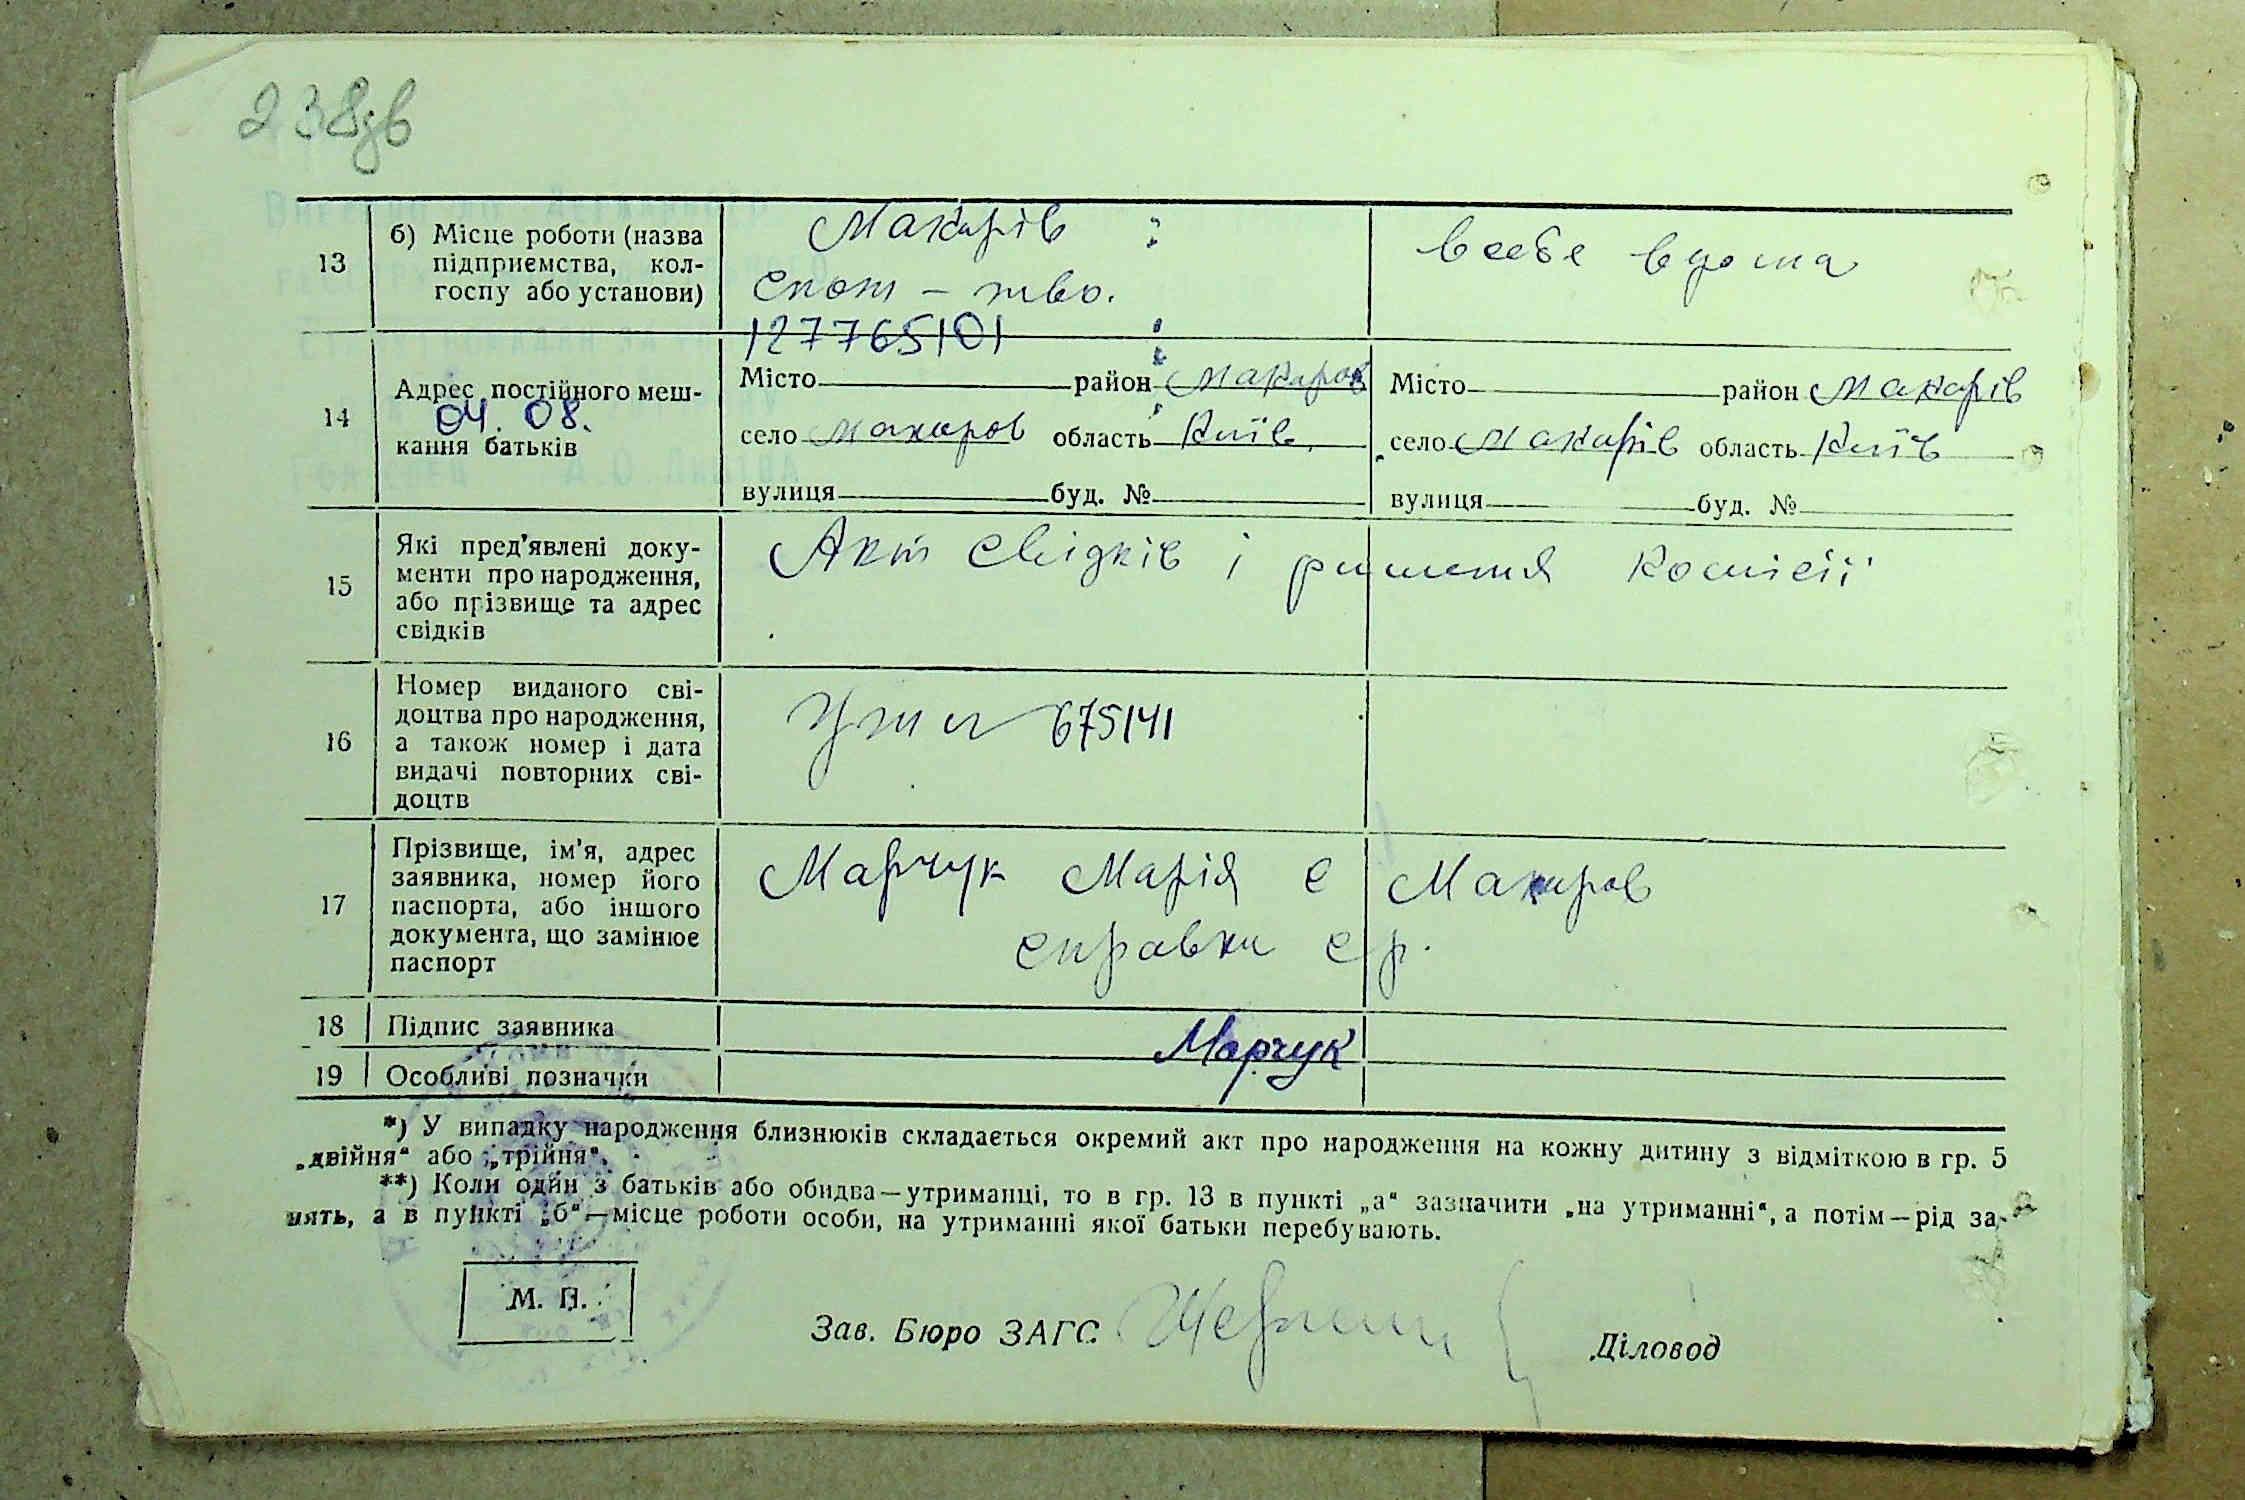 238зв
13
б) Місце роботи (назва
підприємства, кол-
госпу або установи)
Макарів
спож-тво.
в себе вдома
127765101
14
Адрес постійного меш-
04.08.
кання батьків
Місто район Макаров
село Макаров область Київ.
вулиця буд. №
Місто район Макарів
село Макарів область Київ
вулиця буд. №
15
Які пред'явлені доку-
менти про народження,
або прізвище та адрес
свідків
Акт свідків і рішення комісії
16
Номер виданого сві-
доцтва про народження,
а також номер і дата
видачі повторних сві-
доцтв
675141
17
Прізвище, ім'я, адрес
заявника, номер його
паспорта, або іншого
документа, що замінює
паспорт
Марчук Марія с Макаров
справка ср.
18
Підпис заявника
Марчук
19
Особливі позначки
*) У випадку народження близнюків складається окремий акт про народження на кожну дитину з відміткою в гр. 5
„двійня“ або „трійня“.
**) Коли один з батьків або обидва—утриманці, то в гр. 13 в пункті „а“ зазначити „на утриманні“, а потім—рід за-
нять, а в пункті „б“—місце роботи особи, на утриманні якої батьки перебувають.
М. П.
Зав. Бюро ЗАГС
Діловод